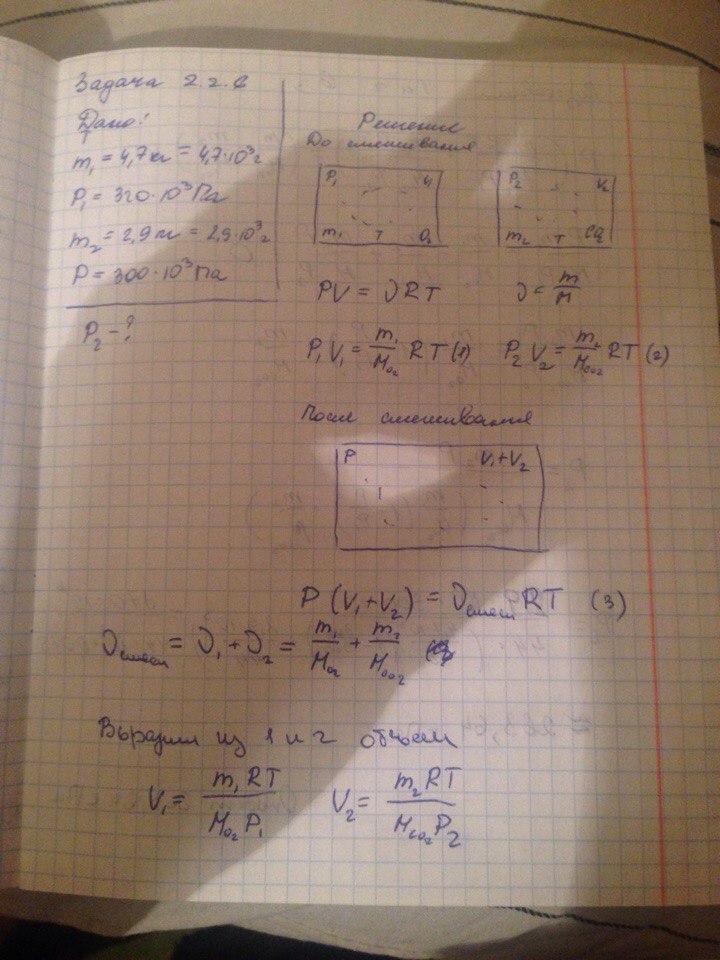 Задача 2.2.6
Дано:
m₁ = 4,7 кг = 4,7·10³ г
P₁ = 320·10³ Па
m₂ = 2,9 кг = 2,9·10³ г
P = 300·10³ Па
P₂ - ?
Решение
До смешивания
P₁ V₁
m₁ T O₂
P₂ V₂
m₂ T CO₂
PV = νRT ν = m/M
P₁V₁ = m₁/M_O₂ RT (1) P₂V₂ = m₂/M_CO₂ RT (2)
После смешивания
P V₁+V₂
P(V₁+V₂) = ν смеси RT (3)
ν смеси = ν₁ + ν₂ = m₁/M_O₂ + m₂/M_CO₂
Выразим из 1 и 2 объем
V₁ = m₁RT/M_O₂P₁ V₂ = m₂RT/M_CO₂P₂